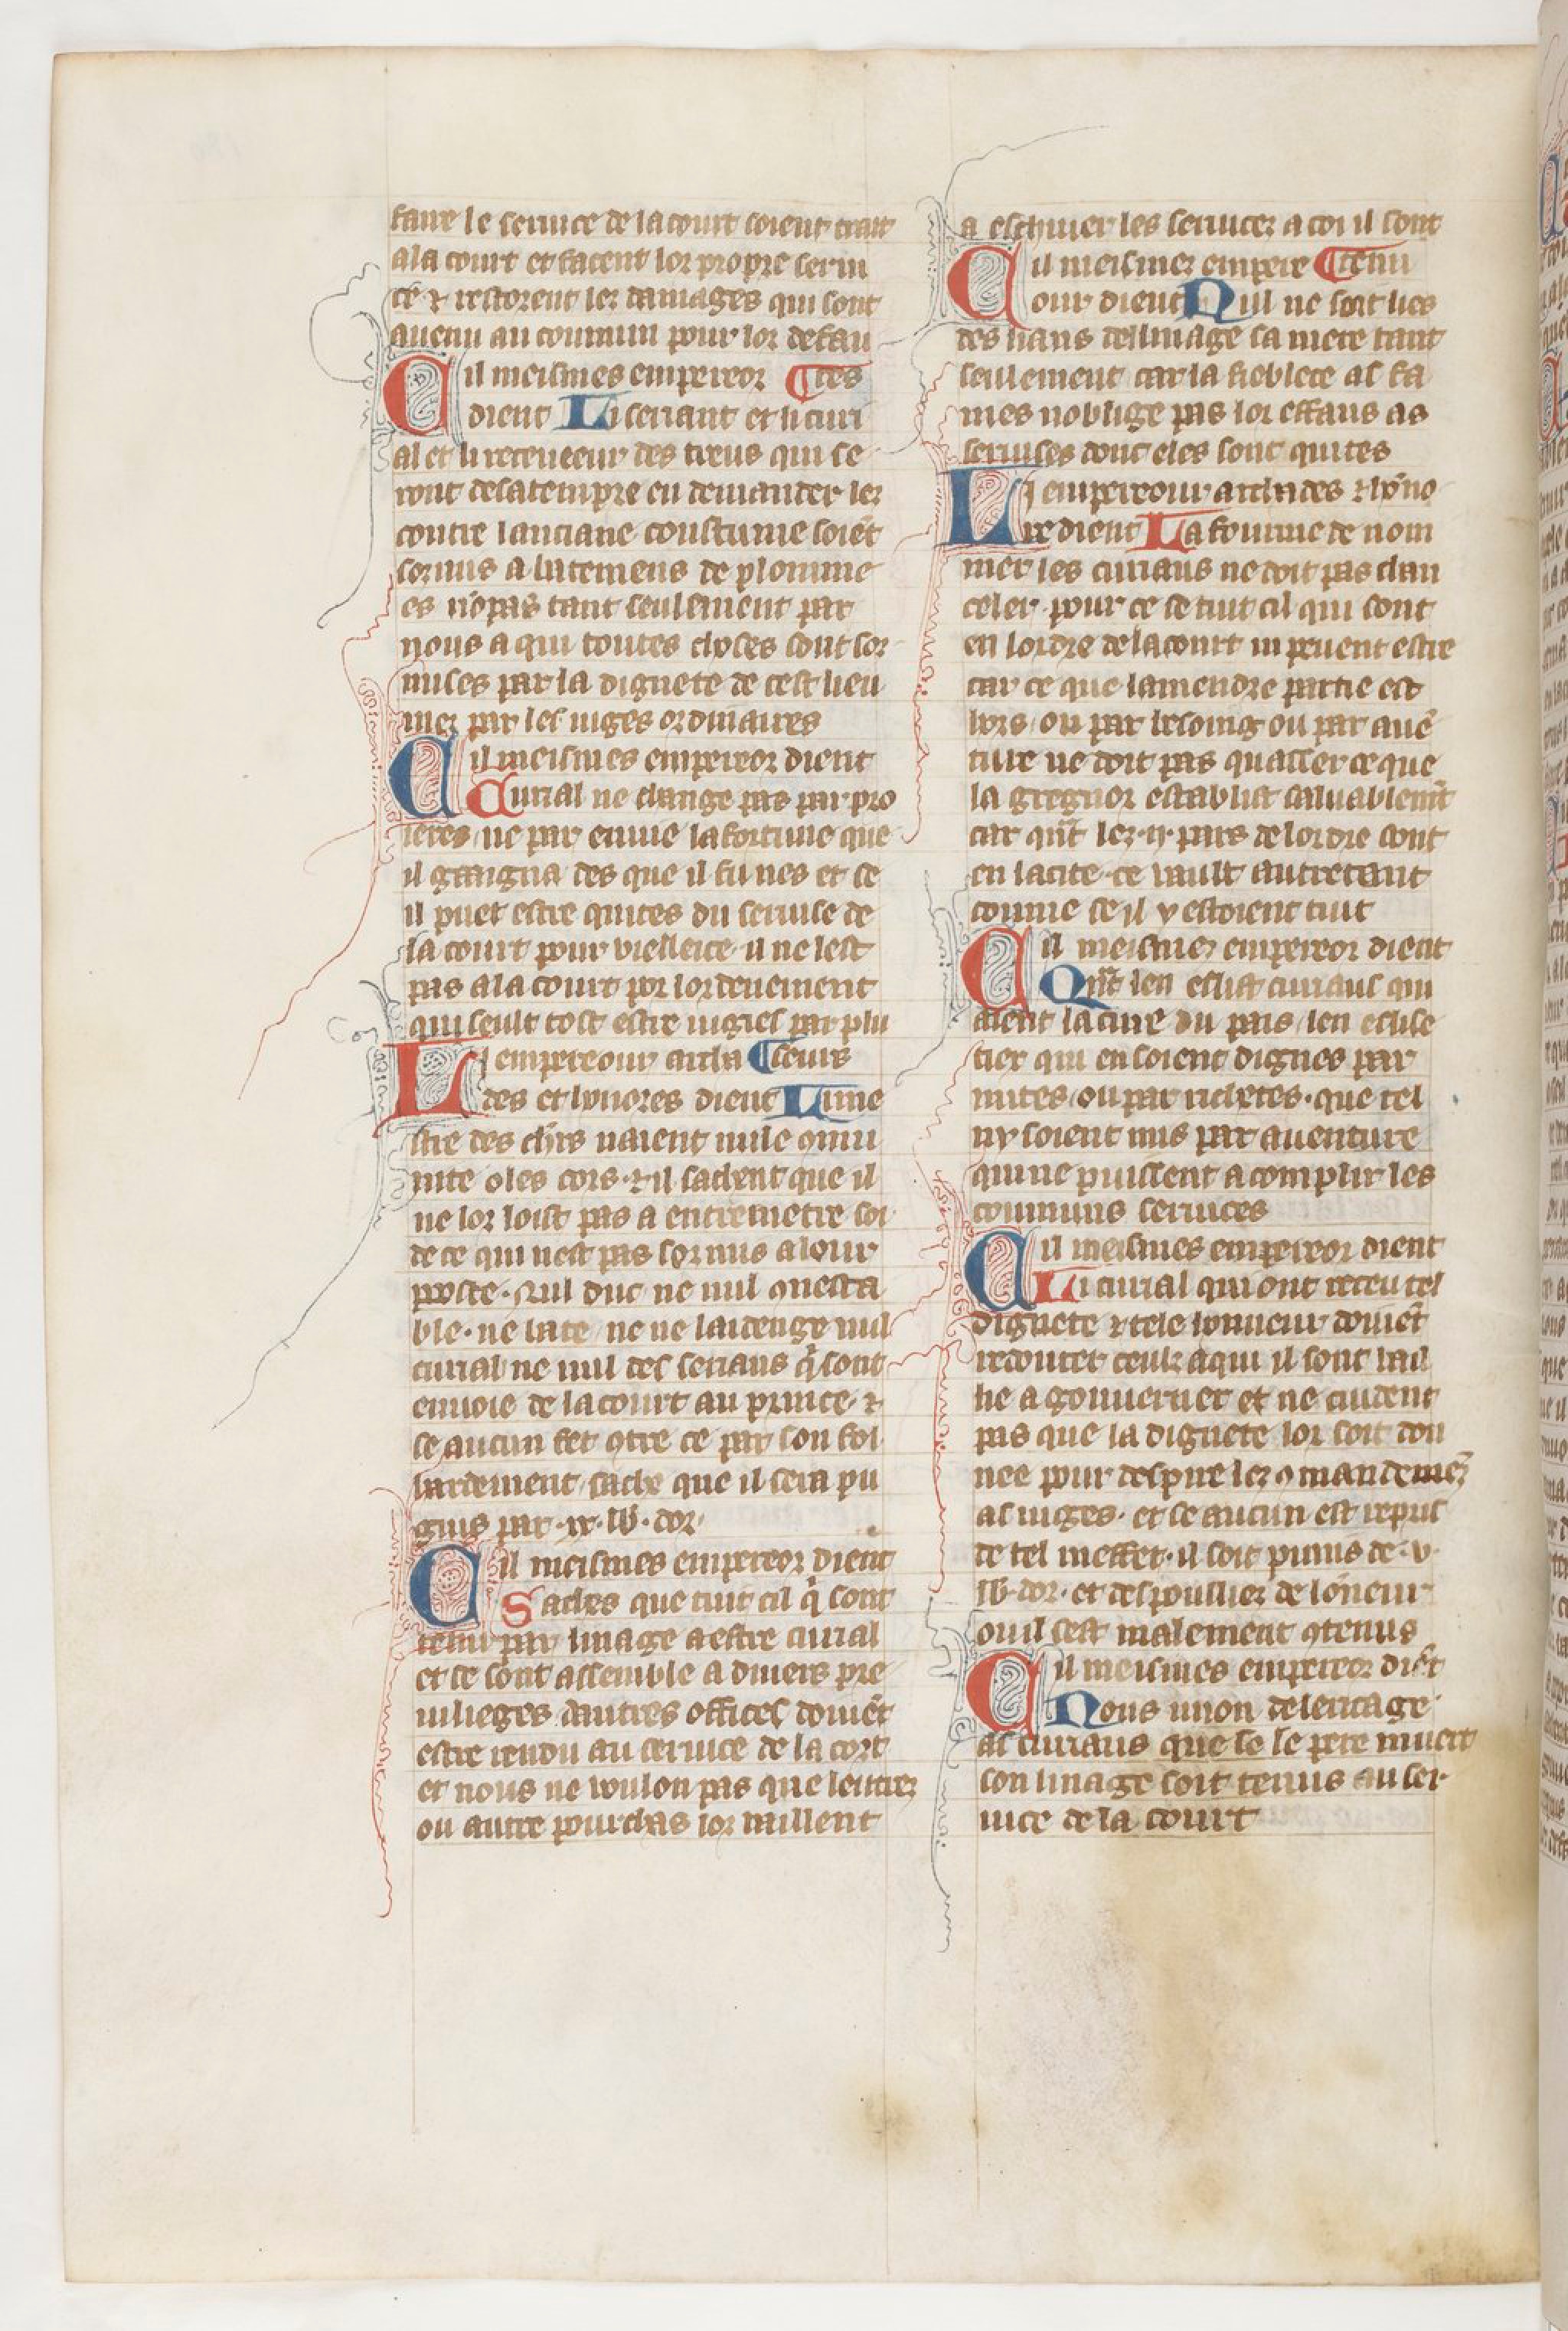 faire le seruice de la court soient trait
a la court et facent lor propre serui
ce ⁊ restorent lez damages qui sont
auenu au commun pour lor defau
Cil meismes empereor ¶ tes
dient Li seriant et li curi
al et li receueeur des treus qui se
ront desatempre en demander lez
contre lanciane coustume soiēt
sozmis a batemens de plomme
es nō pas tant seulement par
nous a qui toutes choses sont soz
mises par la dignete de cest lieu
mez par les iuges ordinaires
Cil meismes empereor dient
Curial ne change pas par pro
ieres ne par enuie la fortune que
il gaaigna des que il fu nes et se
il puet estre quites du seruise de
la court pour viellece il ne lest
pas a la court por lordenement
qui seult tost estre iugies par plu
Li empereour archa ¶ seurs
des et honores dient Li me
stre des chrs naient nule ꝯmu
nite o les cors ⁊ il sachent que il
ne lor loist pas a entremetre soi
de ce qui nest pas sozmis a lour
poste. Nul duc ne nul ꝯnesta
ble. ne bate ne ne laidenge nul
curial ne nul des serians q̄ sont
enuoie de la court au prince. ⁊
se aucun fet ꝯtre ce par son fol
hardement sache que il sera pu
gnis par .xx. lb. dor
Cil meismes empereor dient
Saches que tuit cil q̄ sont
tenu par linage a estre curial
et se sont assemble a diuers pre
uilieges dautres offices doiuēt
estre rendu au seruice de la cort
et nous ne woulon pas que lettrez
ou autre pourchas lor uaillent
a eschiuer les seruicez a coi il sont
Cil meismez empere ¶ tenu
our dient Nul ne soit lies
des lians del linage sa mere tant
seulement car la fieblece as fa
mes noblige pas lor effans as
seruises dont eles sont quites
Li empereour archades ⁊ hōno
re dient La fourme de nom
mer les curiaus ne doit pas chan
celer. pour ce se tuit cil qui sont
en lordre de la court ni peuent estre
car ce que la mendre partie est
hors ou par besoing ou par auē
ture ne doit pas quasser ce que
la gregnor establist saluablemt̄
car qn̄t lez .ij. pars de lordre sont
en la cite. ce vault autretant
comme se il y estoient tuit
Cil meismez empereor dient
Qn̄t len eslist curiaus qui
aient la cure du pais len eslise
tiex qui en soient dignes par
mites ou par richetes. que tel
ny soient mis par auenture
qui ne puissent acomplir les
communs seruices
Cil meismes empereor dient
Li curial qui ont receu tel
dignete ⁊ tele honneur doiuēt
redouter ceulz a qui il sont bail
lie a gouuerner et ne cuident
pas que la dignete lor soit don
nee pour despire lez ꝯmandemēz
as iuges. et se aucun est repris
de tel meffet. il soit punis de .v.
lb. dor. et despoullier de lōneur
ou il sest malement ꝯtenus
Cil meismes empereor diēt
Nous uuon de leritage
as curiaus que se le pere muert
son linage soit tenus au ser
uice de la court